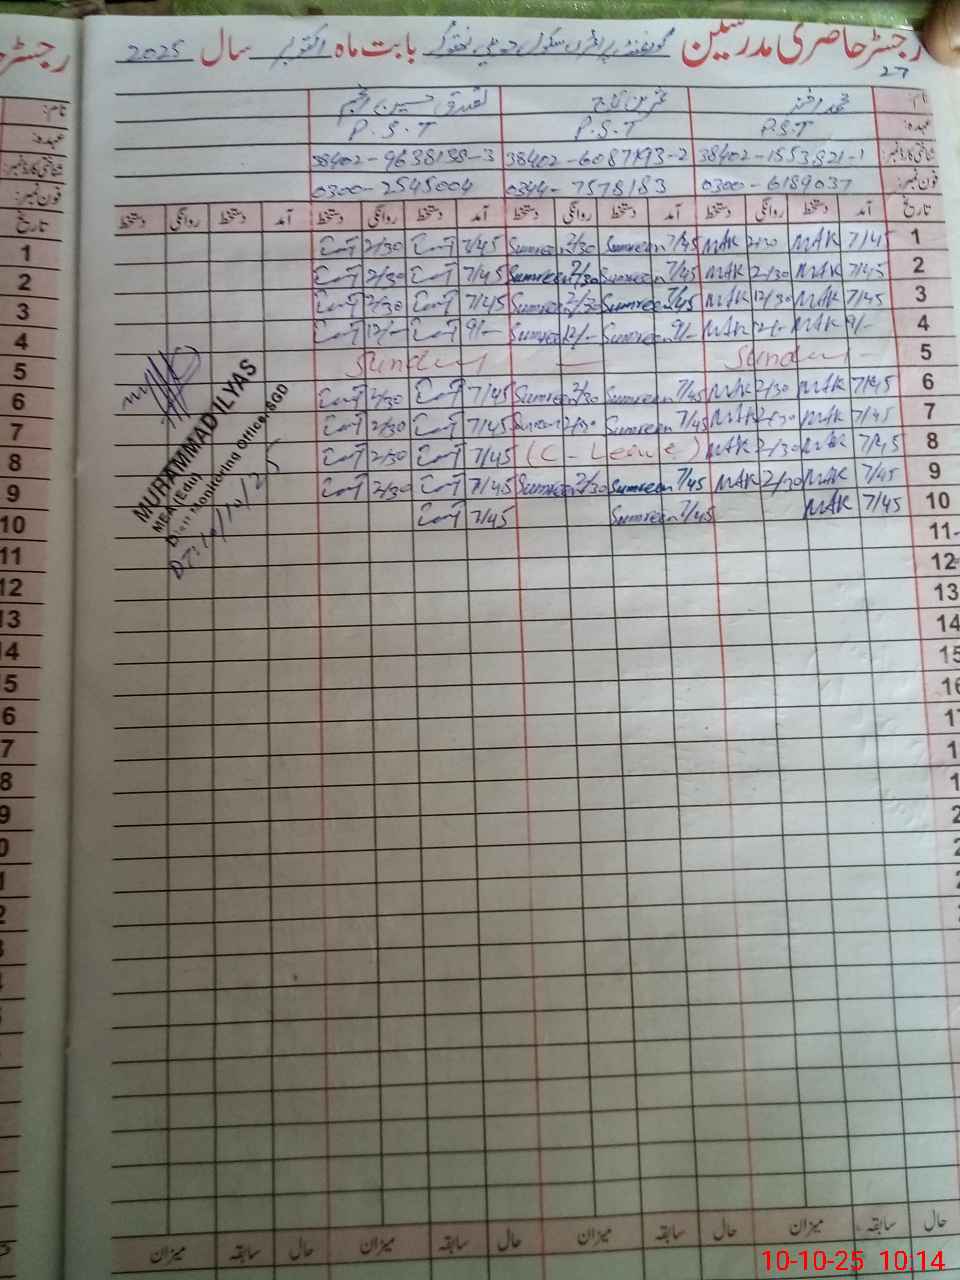 رجسٹر حاضری مدرسین گورنمنٹ پرائمری سکول بابت ماہ اکتوبر سال 2025
27
نام:
عہدہ: P.S.T P.S.T P.S.T
شناختی کارڈ نمبر: 38402-1553821-1 38402-6087193-2 38402-9638138-3
فون نمبر: 0300-6189037 0344-7578183 0300-2545004
تاریخ آمد دستخط روانگی دستخط آمد دستخط روانگی دستخط آمد دستخط روانگی دستخط آمد دستخط روانگی دستخط
1 7/45 MAK 2/30 MAK 7/45 Sumreen 2/30 Sumreen 7/45 2/30
2 7/45 MAK 2/30 MAK 7/45 Sumreen 2/30 Sumreen 7/45 2/30
3 7/45 MAK 12/30 MAK 7/45 Sumreen 2/30 Sumreen 7/45 2/30
4 9/- MAK 12/- MAK 9/- Sumreen 12/- Sumreen 9/- 12/-
5 Sunday - — Sunday
6 7/45 MAK 2/30 MAK 7/45 Sumreen 2/30 Sumreen 7/45 2/30
7 7/45 MAK 2/30 MAK 7/45 Sumreen 2/30 Sumreen 7/45 2/30
8 7/45 MAK 2/30 MAK (C-Leave) 7/45 2/30
9 7/45 MAK 2/30 MAK 7/45 Sumreen 2/30 Sumreen 7/45 2/30
10 7/45 MAK 7/45 Sumreen 7/45
MUHAMMAD ILYAS
MEA (Edu)
Distt Monitoring Officer SGD
DT: 10/10/25
11
12
13
14
15
16
حال سابقہ میزان حال سابقہ میزان حال سابقہ میزان حال سابقہ میزان
10-10-25 10:14